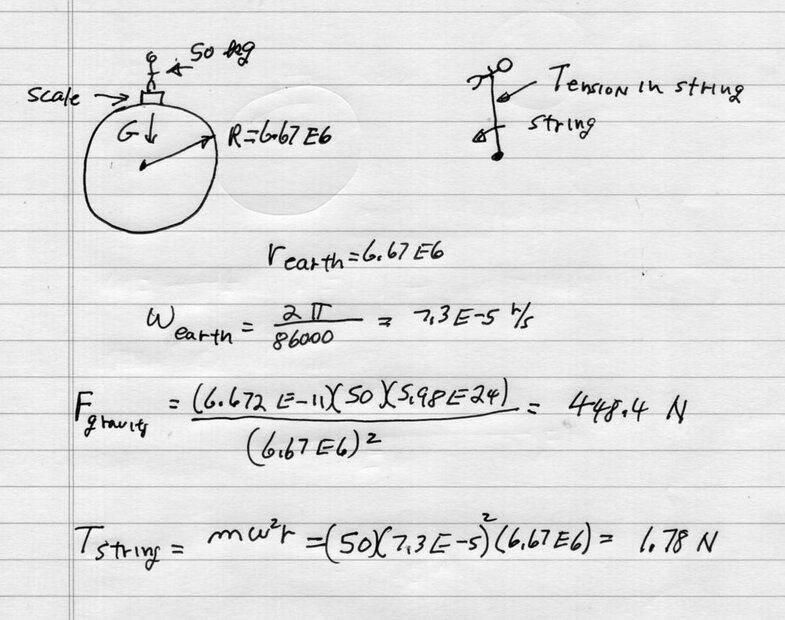 50 kg
scale
G
R=6.67E6
Tension in string
string
r earth=6.67E6
W earth = 2π/86000 = 7.3E-5 r/s
F gravity = (6.672E-11)(50)(5.98E24)/(6.67E6)² = 448.4 N
T string = mω²r=(50)(7.3E-5)²(6.67E6)= 1.78 N